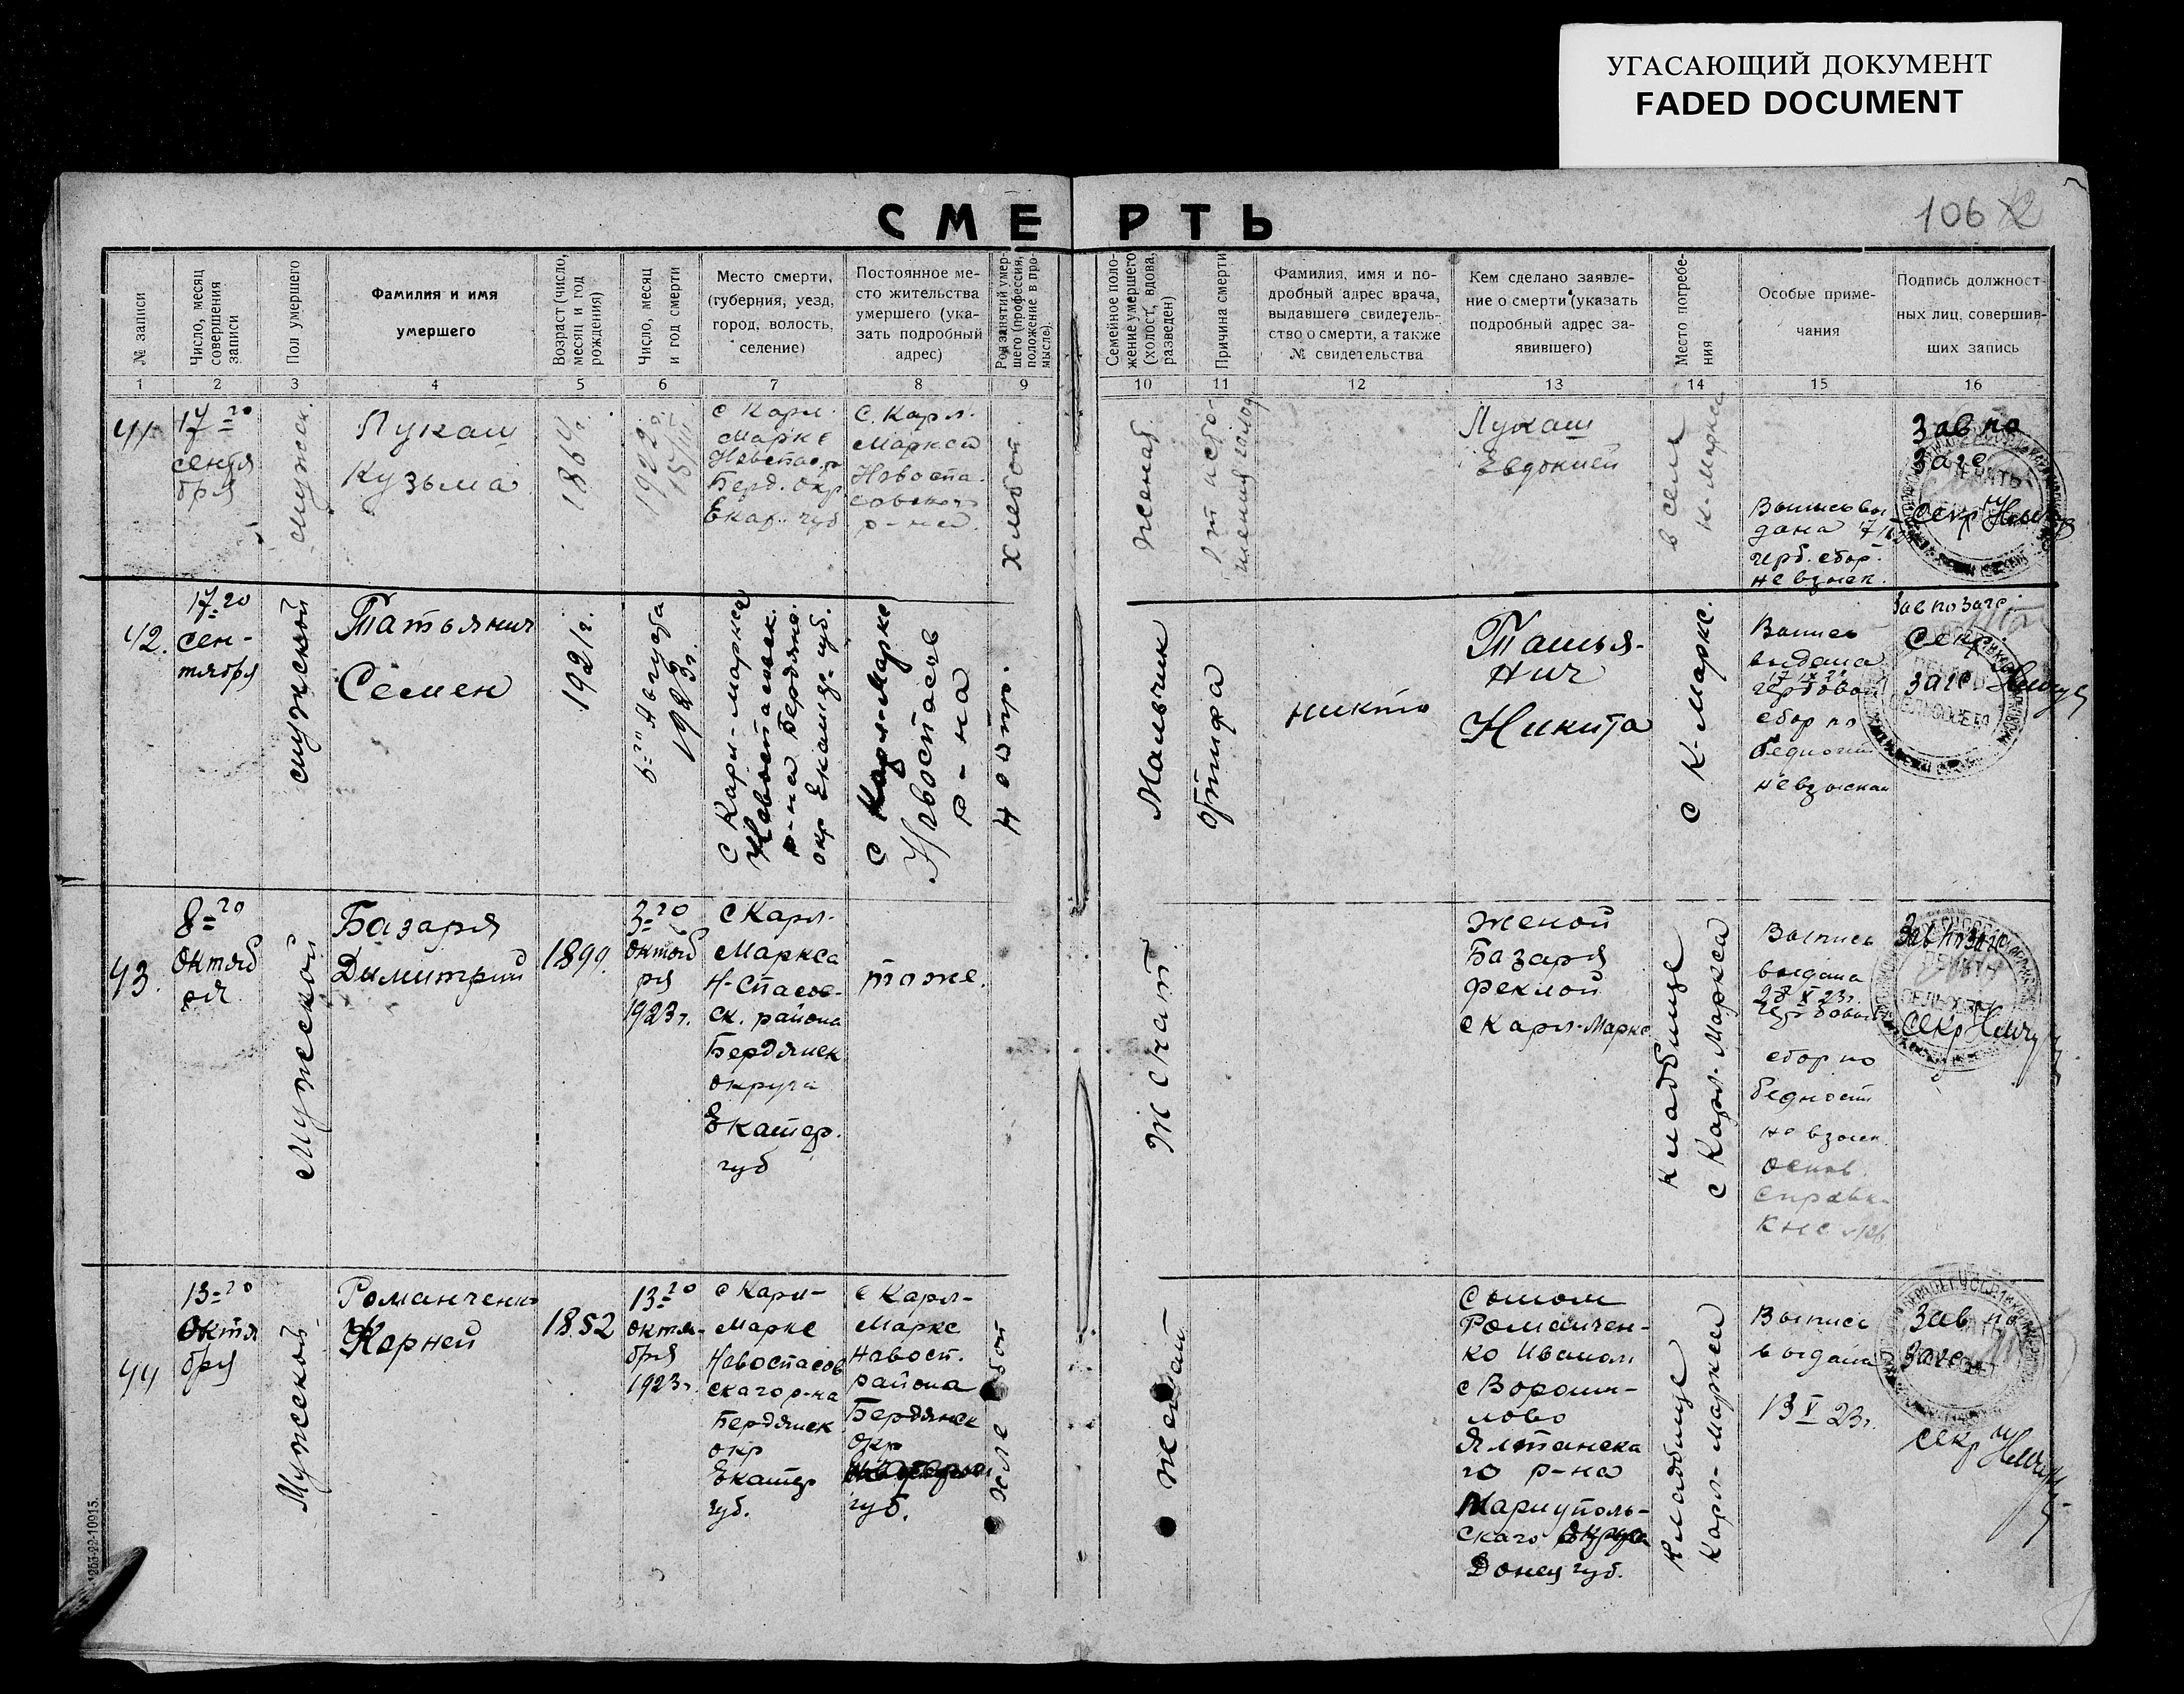 УГАСАЮЩИЙ ДОКУМЕНТ
FADED DOCUMENT
СМЕРТЬ
106
№ записи
Число, месяц
совершения
записи
Пол умершего
Фамилия и имя
умершего
Возраст (число,
месяц и год
рождения)
Число, месяц
и год смерти
Место смерти,
(губерния, уезд,
город, волость,
селение)
Постоянное ме-
сто жительства
умершего (ука-
зать подробный
адрес)
Род занятий умер-
шего (профессия,
положение в про-
мысле).
Семейное поло-
жение умершего
(холост, вдова,
разведен)
Причина смерти
Фамилия, имя и по-
дробный адрес врача,
выдавшего свидетель-
ство о смерти, а также
№ свидетельства
Кем сделано заявле-
ние о смерти (указать
подробный адрес за-
явившего)
Место погребе-
ния
Особые приме-
чания
Подпись должност-
ных лиц, совершив-
ших запись
1 2 3 4 5 6 7 8 9 10 11 12 13 14 15 16
41
17-го
сентя
бря
мужск.
Лукаш
Кузьма
1864г.
1922г.
15/III
с Карл.
Маркс
Новоспас.
Берд. окр
Екат. губ
с. Карл.
Маркса
Новоспа-
совског
р-на.
Хлебоп.
женат.
От исто-
щения голод
Лукаш
Евдокией
в селе
К-Маркса
Выпись вы
дана
герб. сбор.
не взыск.
Зав по
загс
секр
42.
17-го
сен-
тября
мужской
Татьянич
Семен
1921г.
6-го Августа
1923г.
с Карл-Маркса
Новоспасовск.
р-на Бердянс.
окр Екатер. губ.
с Карл-Маркс
Новоспасов
р-на
Мальчик
никто
Татья-
нич
Никита
с К-Маркс.
Выпись
выдана
гербовой
сбор по
бедности
не взыскан
Зав по загс
секр.
загс
43.
8-го
Октяб
ря
Мужеской
Базаря
Димитрий
1899.
3-го
Октяб
ря
1923г.
с Карл-
Маркса
Н-Спасов-
ск. района
Бердянск
округа
Екатер.
губ
тоже.
Женат
Женой
Базаря
Феклой
с Карл-Маркс
Кладбище
с Карл-Маркса
Выпись
выдана
28 X 23г.
гербовой
сбор по
бедности
не взыск
основ.
справки
КНС
Зав по загс
секр
44
13-го
Октя
бря
Мужеской
Романченко
Корней
1852
13-го
Октя-
бря
1923г.
с Карл-
Маркс
Новоспасов
скаго р-на
Бердянск
окр
Екатер
губ.
с Карл-
Маркс
Новосп.
района
Бердянск
окр
губ.
Хлебой
женат
Сыном
Романчен-
ко Иваном
с Вороши-
лово
Ялтанска
го р-на
Мариуполь-
скаго округа
Донец губ.
Кладбище
Карл-Маркса
Выпись
выдана
13 X 23г.
Зав по
Загс
секр